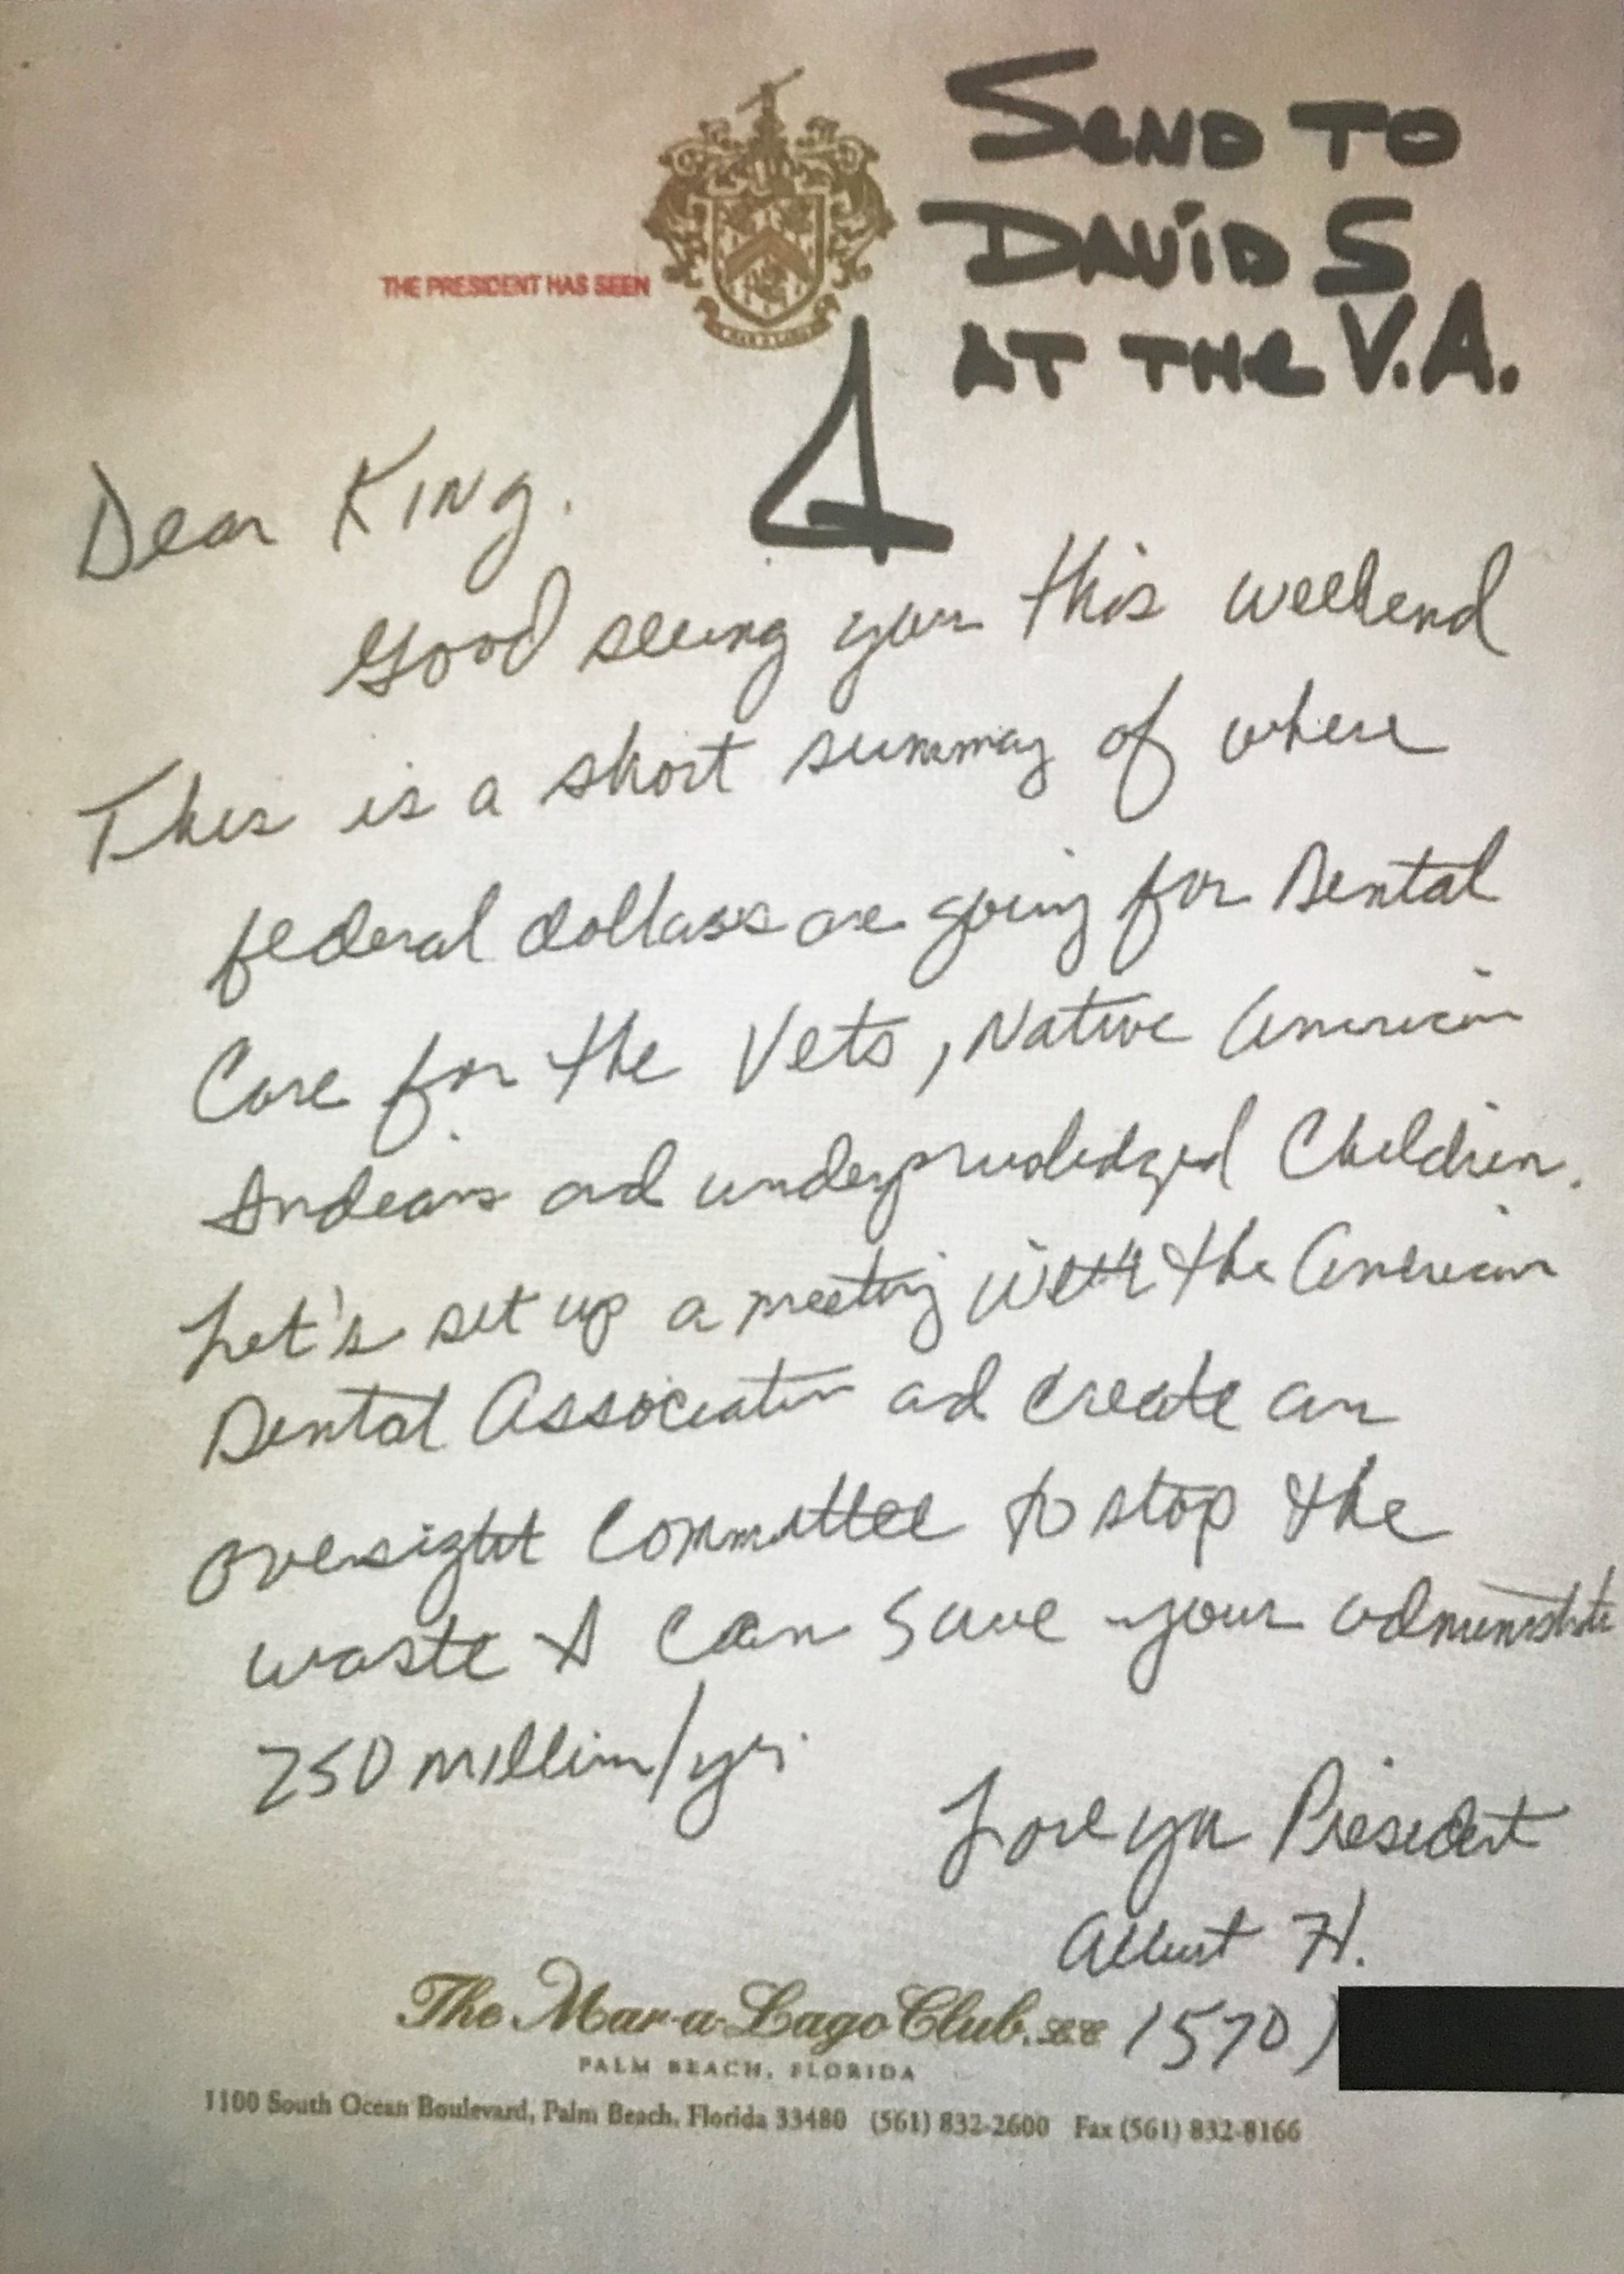 SEND TO
DAViD S
AT THe V.A.
THE PRESIDENT HAS SEEN
Dear King.
Good seeing you this weekend
This is a short summay of where
federal dollars are going for Dental
Care for the Vets, Native American
Indians and underpriviledged Children.
Let's set up a meeting with the American
Dental Association and create an
oversight Committee to stop the
waste & can save your
250 million/yr.
Love ya President
Albert H.
The Mar-a-Lago Club, L.C. (570)
PALM BEACH, FLORIDA
1100 South Ocean Boulevard, Palm Beach, Florida 33480 (561) 832-2600 Fax (561) 832-8166